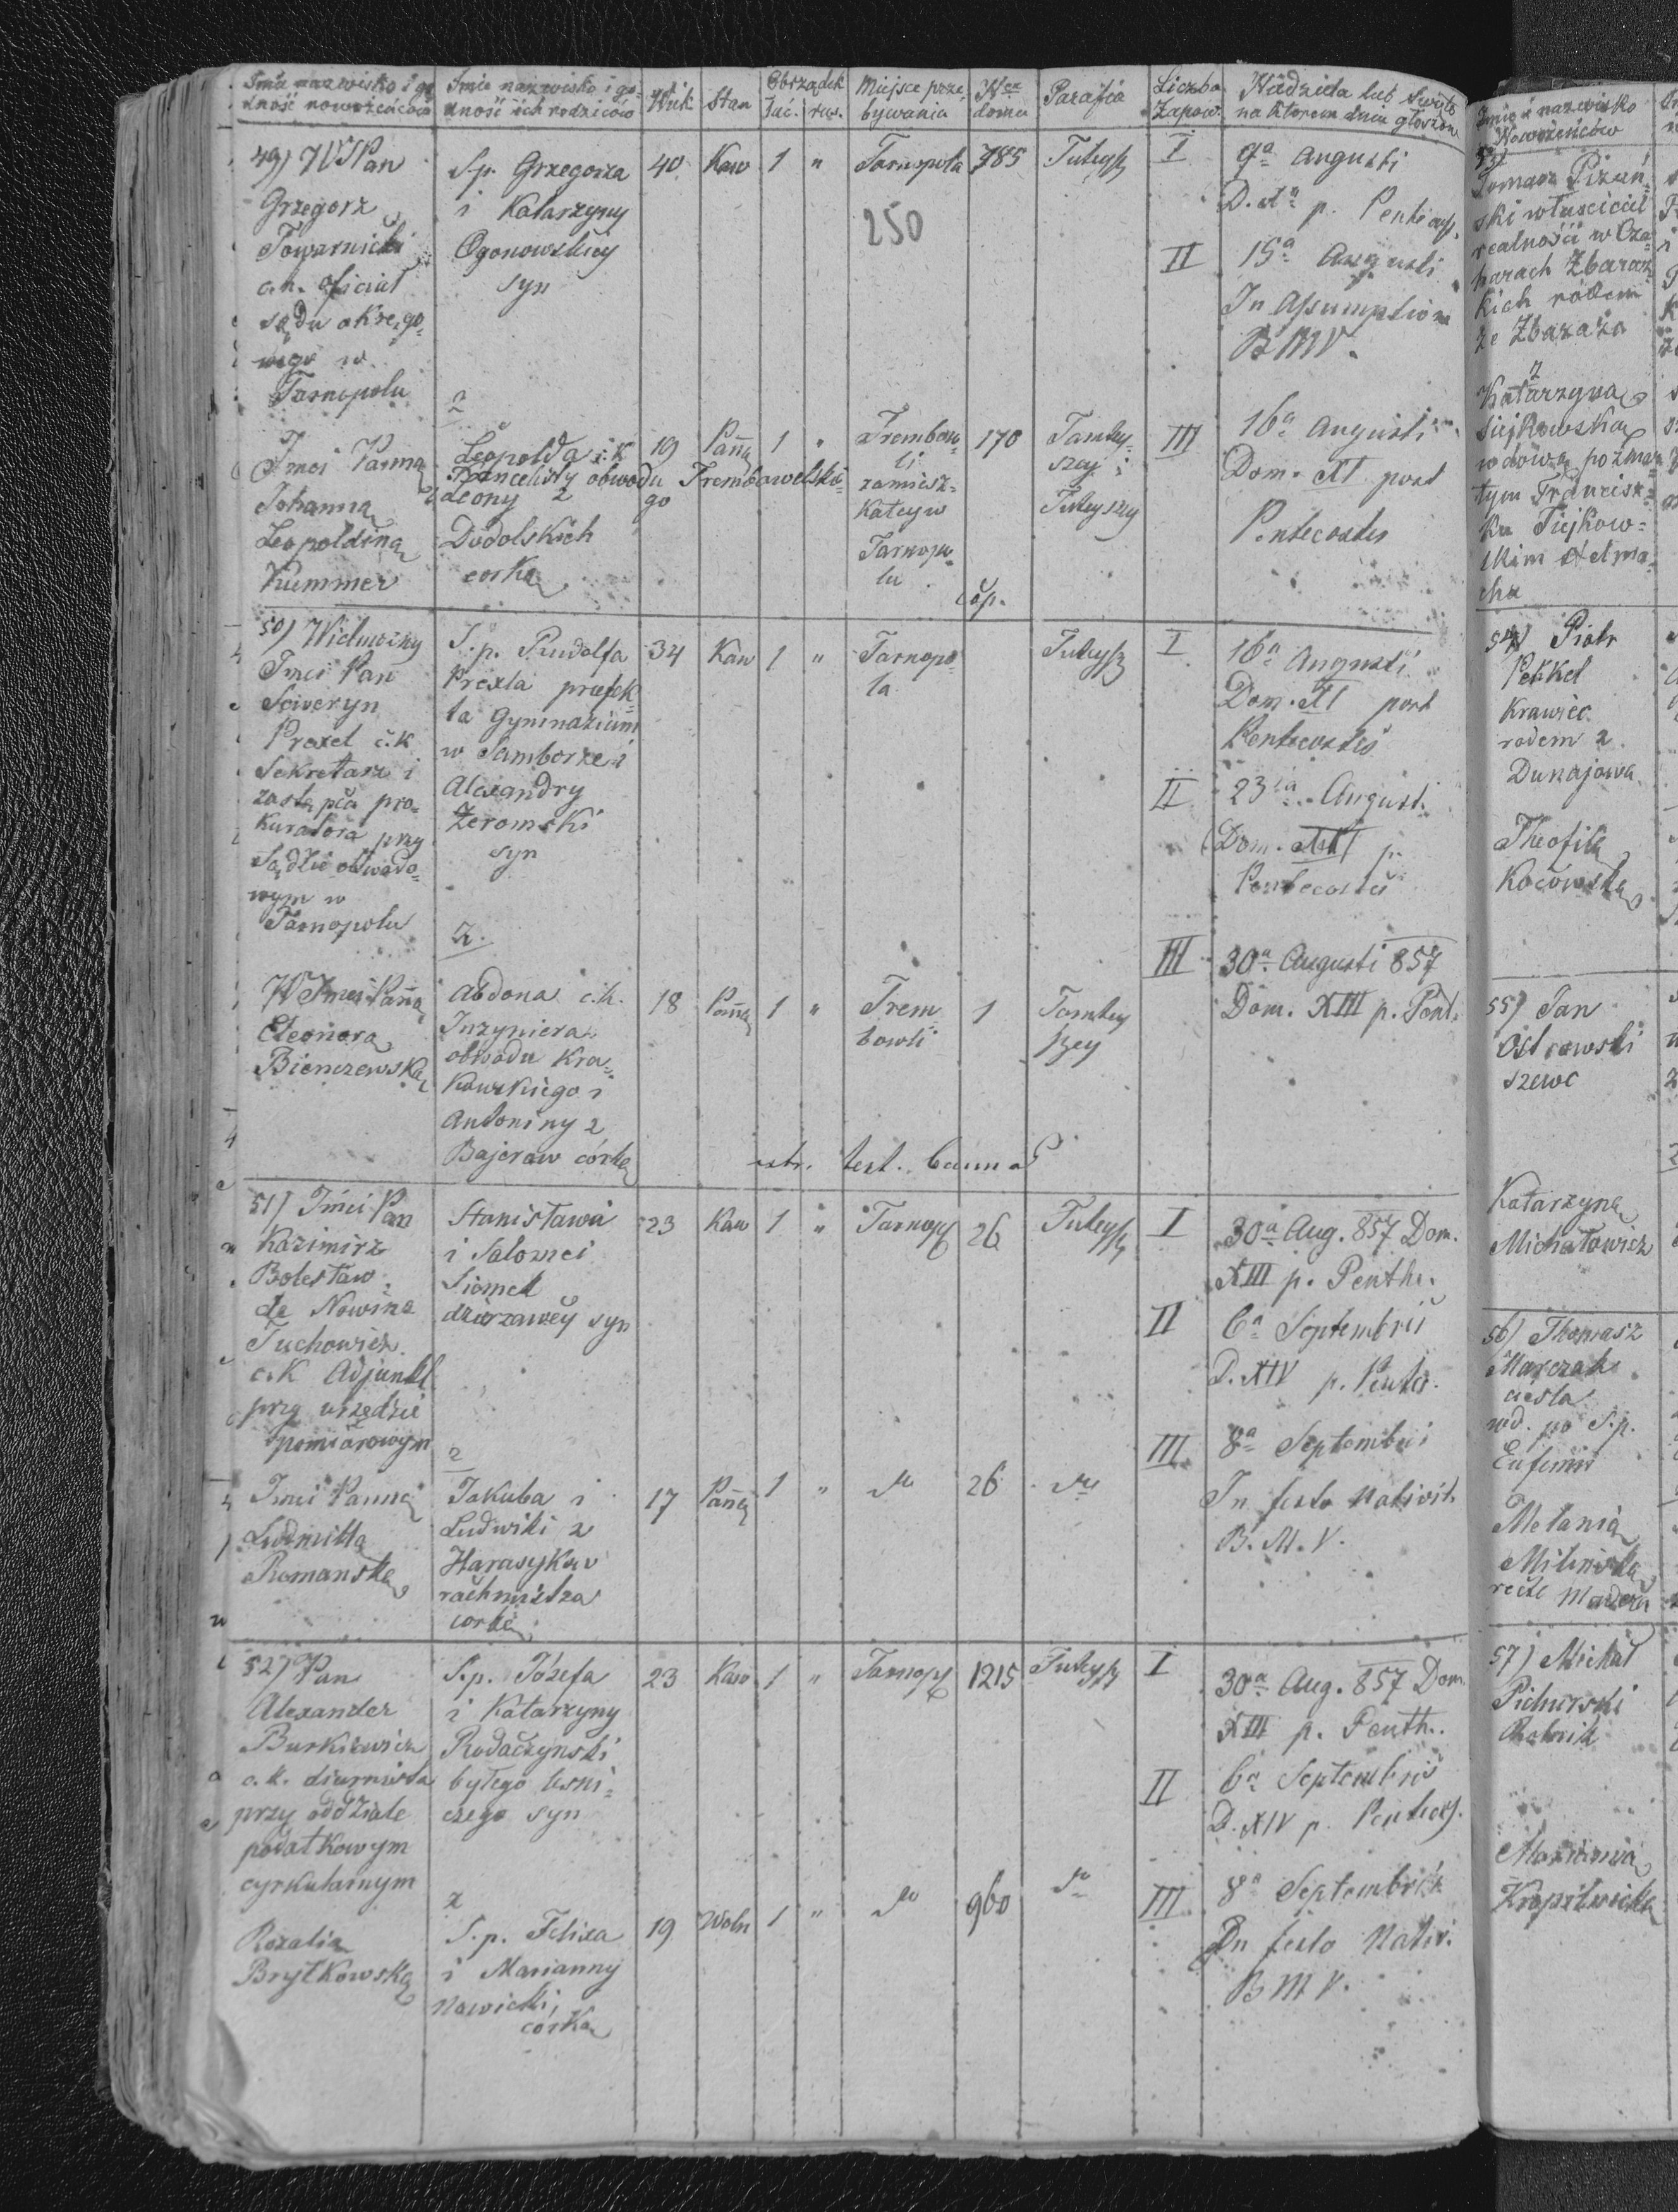 Imie nazwisko i go
dność nowożeńców
Imie nazwisko i go-
dność ich rodziców
Wiek
Stan
Obrządek
łać. rus.
Miejsce prze
bywania
Ner
domu
Parafia
Liczba
Zapow.
Niedziela lub święto
na ktorem dniu głoszon
49) W Pan
Grzegorz
Towarnicki
c.k. oficiał
sądu okręgo-
wego w
Tarnopolu
Sp. Grzegorza
i Katarzyny
Ogonowskiey
syn
40 Kaw 1 " Tarnopola 785 Tuteysz
250
I 9a Augusti
D. Xa p. Pentecos.
II 15a Augusti
In Assumption
BMV.
z
Imci Panna
Johanna
Leopoldina
Kummer
Leopolda c.k
Kancelisty obwodu Trembowelskie-
go
i Leony z
Dodolskich
corka
19 Panna 1 "
Trembow-
li
zamiesz-
kałey w
Tarnopo-
lu
170
Tamtey-
szey i
Tuteyszey
III 16a Augusti
Dom. XI post
Pentecostes
50) Wielmożny
Imci Pan
Seweryn
Prexel c.k
Sekretarz i
zastępca pro-
kuratora przy
Sądzie obwodo-
wym w
Tarnopolu
S.p. Rudolfa
Prexla prefek-
ta Gymnazium
w Samborze i
Alexandry
Żeromski
syn
34 Kaw 1 " Tarnopo-
la
Tuteysz
I 16a Augusti
Dom. XI post
Pentecostes
II 23ia Augusti
Dom. XII p.
Pentecostes
z.
III 30a Augusti 857
Dom. XIII p. Pent.
W Imci Panna
Eleonora
Bienczewska
Abdona c.k.
Inzyniera
obwodu Kra-
kowskiego i
Antoniny z
Bajeraw córka
18 Panna 1 " Trem
bowli
1
Tamtey
szey
test.
51) Imci Pan
Kazimirz
Bolesław
de Nowina
Tuchowicz
c.k Adjunkt
przy urzędzie
pomiarowym
Stanisława
i Salomei
Siomek
dzierzawcy syn
23 Kaw 1 " Tarnop 26 Tuteysz
I 30a Aug. 857 Dom.
XIII p. Penthe.
II 6a Septembris
D. XIV p. Pente.
III 8a Septembris
In festo Nativit.
B. M. V.
z
Imci Panna
Ludmilla
Romanska
Jakuba i
Ludwiki z
Harasykow
rachmistza
corka
17 Panna 1 " do 26 do
52) Pan
Alexander
Burkiewicz
c.k. diurnista
przy oddziale
podatkowym
cyrkularnym
S.p. Józefa
i Katarzyny
Rodaczynski
byłego lesni-
czego syn
23 Kaw 1 " Tarnop 1215 Tuteysz
I 30a Aug. 857 Dom.
XIII p. Penth.
II 6a Septembris
D. XIV p. Pentecos.
III 8a Septembris
In festo Nativ.
B M V.
z
Rozalia
Brytkowska
S.p. Felixa
i Marianny
Nawicki,
córka
19 Woln 1 " do 960 do
Imie i nazwisko
Nowożeńców
Tomasz Pizań-
ski właściciel
realności w Cza-
harach Zbaraz-
kich rodem
ze Zbaraża
z
Katarzyna
wdowa po zmar
tym Francisz-
ku
54) Piotr
Pekkel
Krawiec
rodem z
Dunajowa
Theofila
Kocowska
55) Jan
Ostrowski
szewc
Katarzyna
Michałowicz
56) Thomasz
Marczak
ciesla
wd. po S.p.
Eufemii
Melania
Milinska
recte
57) Michał
Pichurski
Rolnik
Maxianna